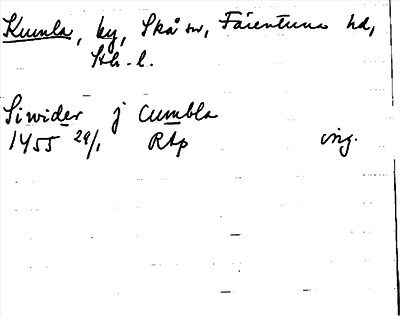 Kumla, by, Skå sn, Färentuna hd,
Sth. l.
Siwider j Cumbla
1455 29/1 RAp orig.